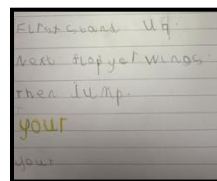 First stand up.
Next flap yer wings.
Then Jump.
your
your